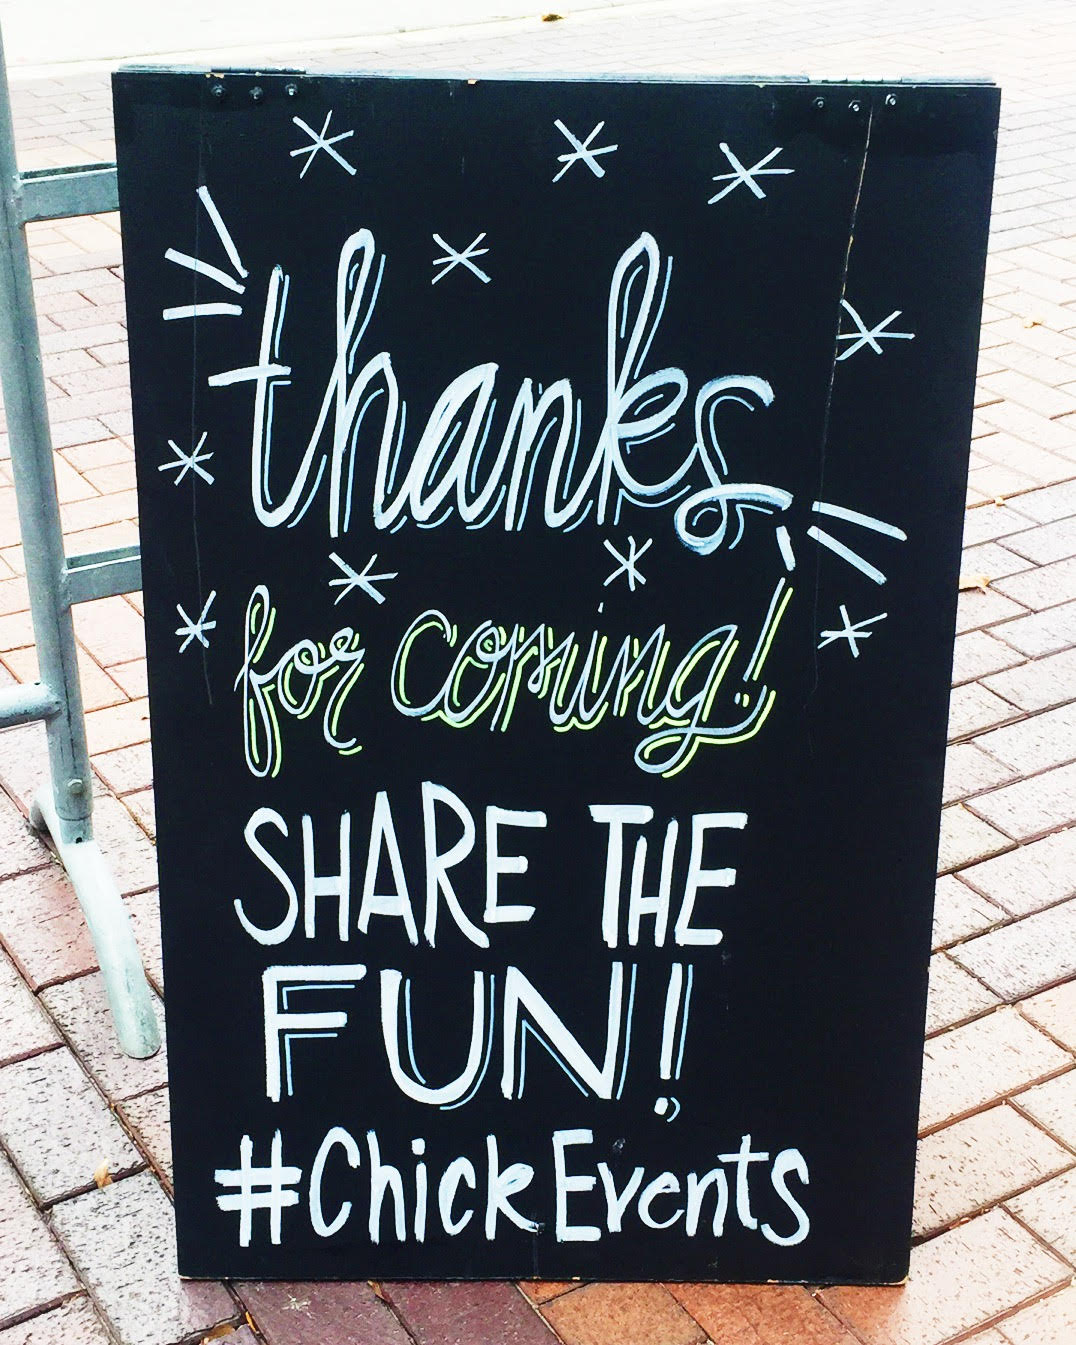 thanks
for coming!
SHARE THE
FUN!
#ChickEvents